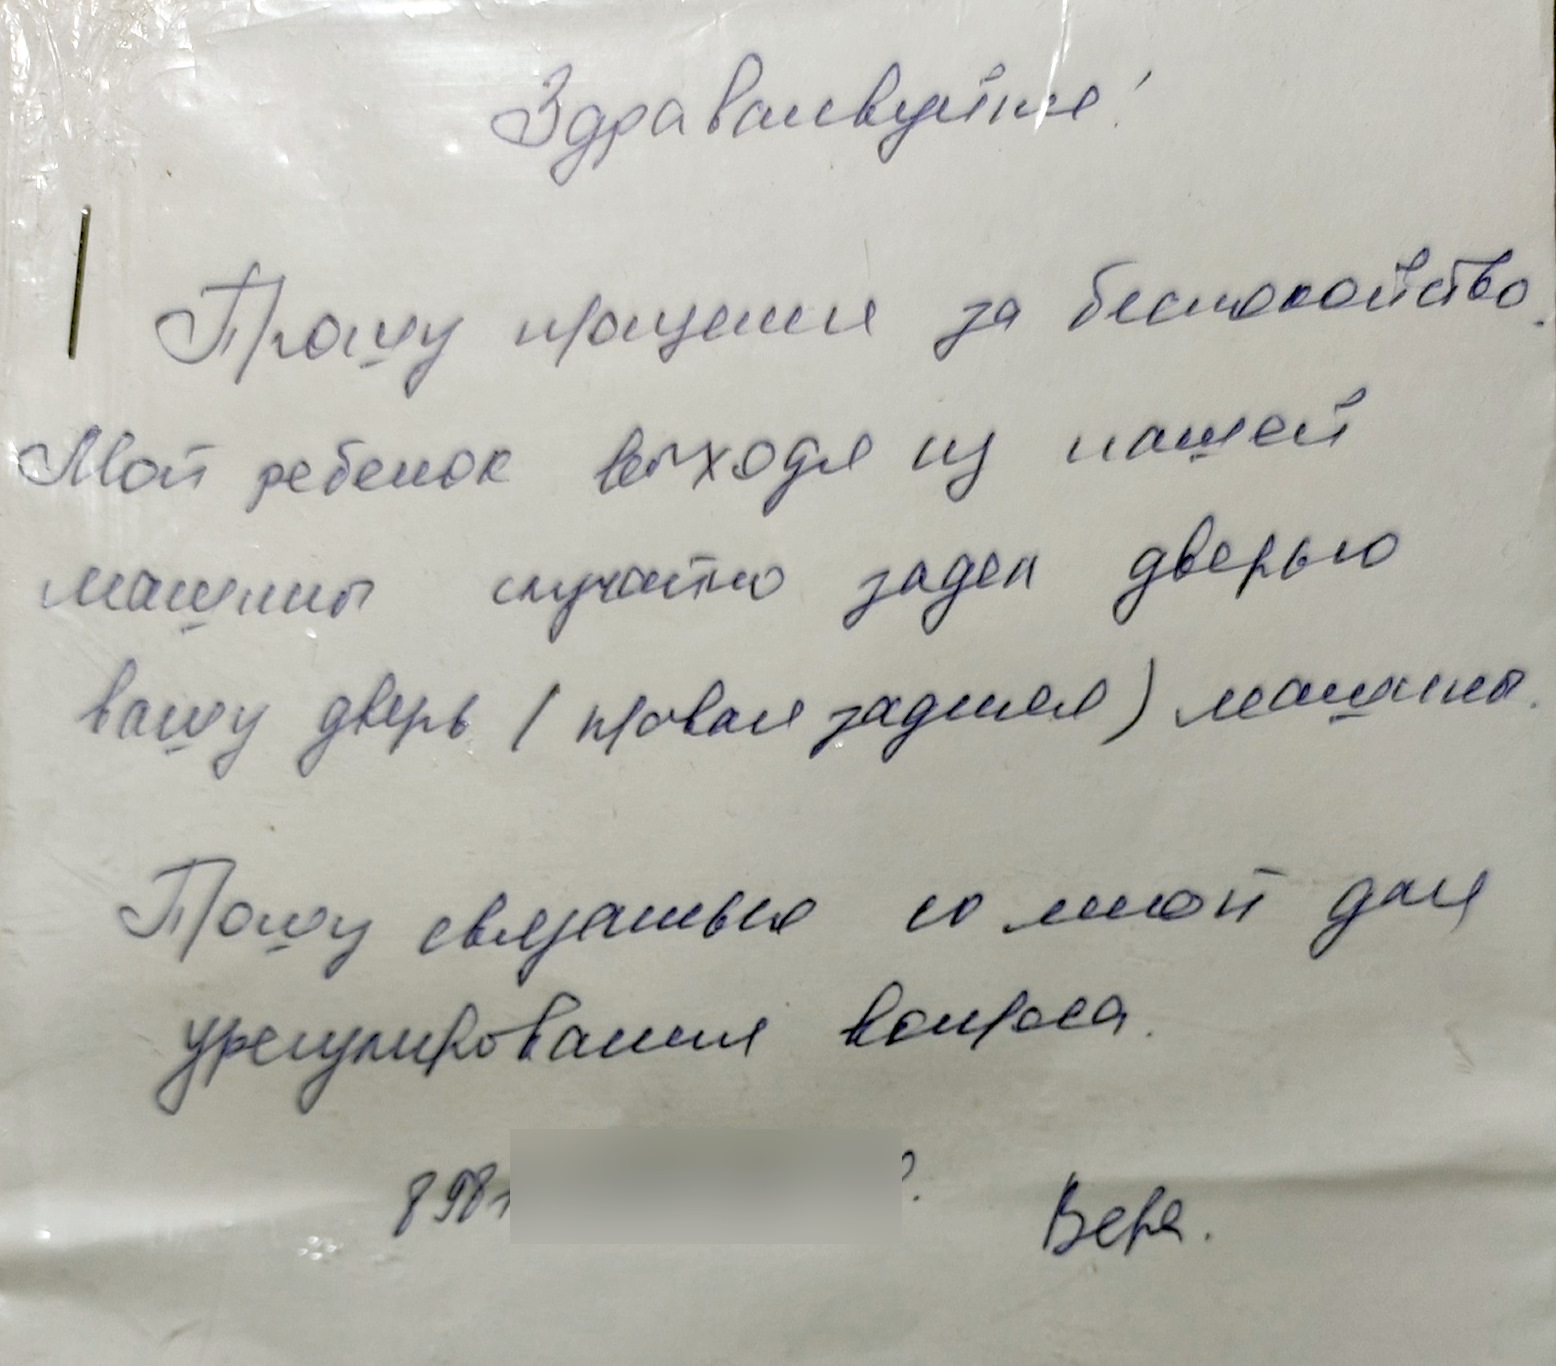 Здравствуйте!
Прошу прощения за беспокойство.
Мой ребенок выходя из нашей
машины случайно задел дверью
вашу дверь (правая задняя) машины.
Пошу связаться со мной для
урегулирования вопроса.
8981
Вера.